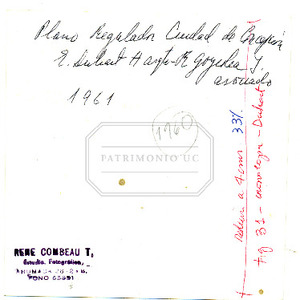 Plano Regulador Ciudad de Copiapó
E. Duhart H arqto - R. Goycolea I.
asociado
1961
1960
PATRIMONIO UC
reducir a 4 cms 33%
fig 31 - monografia - Duhart
RENE COMBEAU T.
Estudio Fotográfico
AHUMADA
FONO 63551